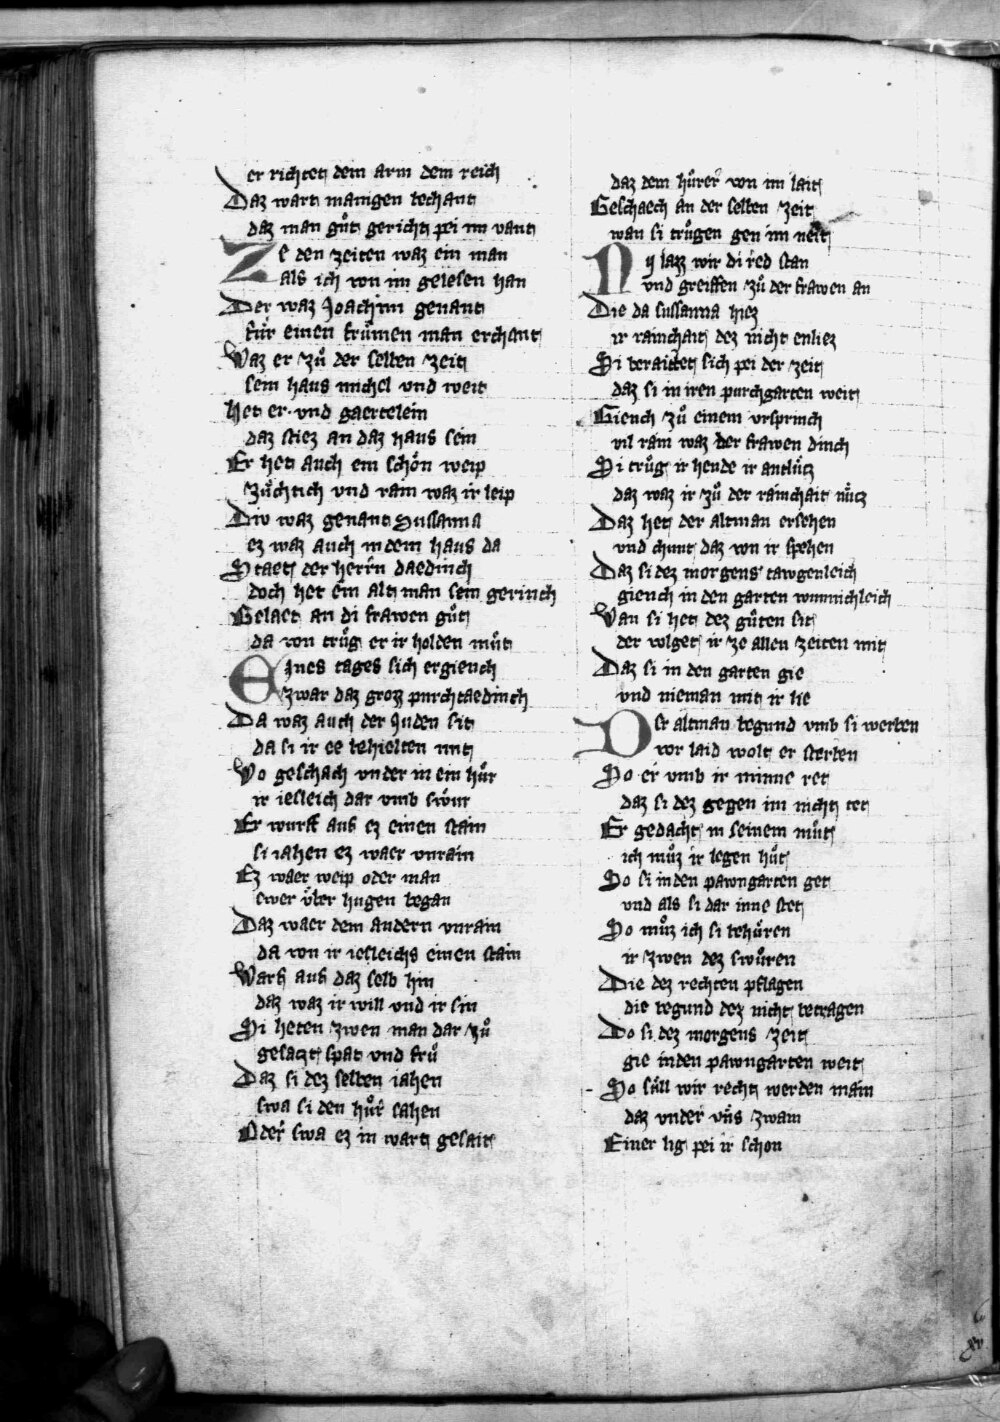 er richtet dem arm dem reich
Daz wart manigen bechant
daz man gůt gericht pei im vant
Ze den zeiten waz ein man
als ich von im gelesen han
Der waz Joachim genant
für einen frůmen man erchant
Waz er zů der selben zeit
sein haus michel vnd weit
Het er vnd gaertelein
daz stiez an daz haus sein
Er het auch ein schön weip
züchtich vnd rain waz ir leip
Div waz genant Sussanna
ez waz auch in dem haus da
Staet der herrn daedinch
doch het ein alt man sein gerinch
Gelaet an di frawen gůt
da von trůg er ir holden můt
Eines tages sich ergiench
zwar daz grozz purchtaedinch
Da waz auch der Juden sit
da si ir ee behielten mit
Wo geschach vnder in ein hůr
ir iesleich dar vmb swůr
Er wurff aus ez einen stain
si iahen ez waer vnrain
Ez waer weip oder man
swer über hugen began
Daz waer dem andern vnrain
da von ir iesleichs einen stain
Warf aus daz selb hin
daz waz ir will vnd ir sin
Si heten zwen man dar zů
gesaczt spat vnd frů
Daz si dez selben iahen
swa si den hůrer sahen
Oder swa ez in wart gesait
daz dem hůrer von im lait
Geschaech an der selben zeit
wan si trůgen gen im neit
Nu lazz wir di red stan
vnd greiffen zů der frawen an
Die da sussanna hiez
ir rainchait dez nicht enliez
Si beraittet sich pei der zeit
daz si in iren purchgarten weit
Giench zů einem vrsprinch
vil rain waz der frawen dinch
Si trůg ir hende ir antlücz
daz waz ir zů der rainchait nücz
Daz het der altman ersehen
vnd chunt daz von ir spehen
Daz si dez morgens tawgenleich
giench in den garten wunnichleich
Wan si het dez gůten sit
der volget ir ze allen zeiten mit
Daz si in den garten gie
vnd nieman mit ir lie
Der altman begund vmb si werben
vor laid wolt er sterben
So er vmb ir minne ret
daz si dez gegen im nicht tet
Er gedacht in seinem můt
ich můz ir legen hůt
So si in den pawngarten get
vnd als si dar inne stet
So můz ich si behůren
ir zwen dez swůren
Die dez rechten pflagen
die begund dez nicht betragen
Do si dez morgens zeit
gie in den pawngarten weit
So süll wir recht werden main
daz vnder vns zwain
Einer lig pei ir schon